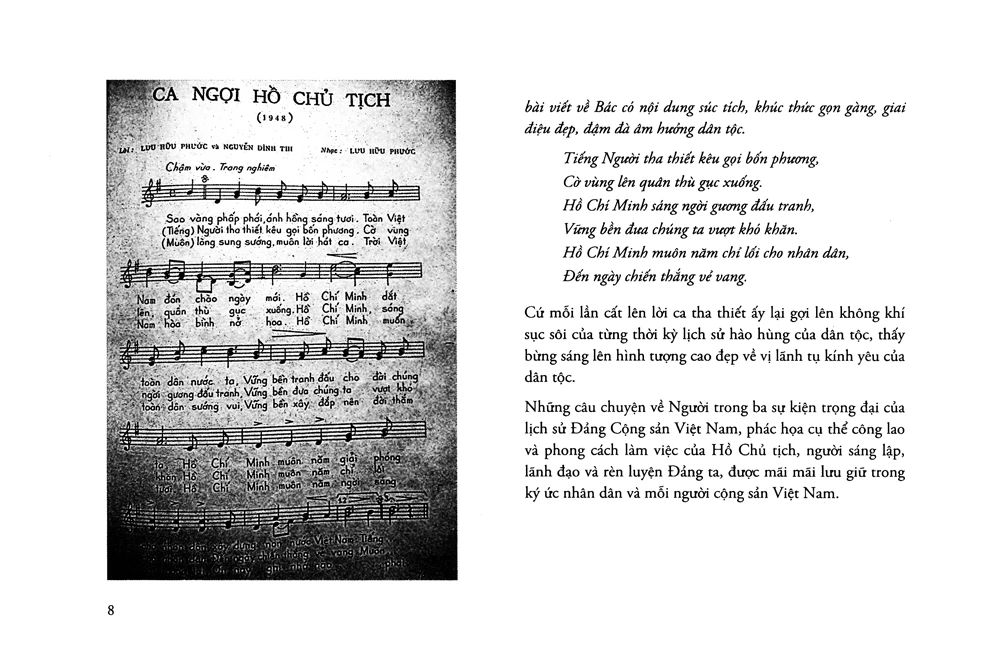 CA NGỢI HỒ CHỦ TỊCH
(1948)
Lời: LƯU HỮU PHƯỚC và NGUYỄN ĐÌNH THI Nhạc: LƯU HỮU PHƯỚC
Chậm vừa. Trang nghiêm
Sao vàng phấp phới, ánh hồng sáng tươi. Toàn Việt
(Tiếng) Người tha thiết kêu gọi bốn phương. Cờ vùng
(Muôn) lòng sung sướng, muôn lời hát ca. Trời Việt
Nam đón chào ngày mới. Hồ Chí Minh dắt
lên, quân thù gục xuống. Hồ Chí Minh, sáng
Nam hòa bình nở hoa. Hồ Chí Minh muôn
toàn dân nước ta, Vững bền tranh đấu cho đời chúng
ngời gương đấu tranh, Vững bền đưa chúng ta vượt khó
toàn dân sướng vui, Vững bền xây đắp nên đời thắm
ta Hồ Chí Minh muôn năm giải phóng
khăn Hồ Chí Minh muôn năm chỉ lối
tươi Hồ Chí Minh muôn năm ngời sáng
cho nhân dân xây dựng một nước Việt Nam. Tiếng
cho nhân dân Đến ngày chiến thắng vẻ vang Muôn
8
bài viết về Bác có nội dung súc tích, khúc thức gọn gàng, giai
điệu đẹp, đậm đà âm hưởng dân tộc.
Tiếng Người tha thiết kêu gọi bốn phương,
Cờ vùng lên quân thù gục xuống.
Hồ Chí Minh sáng ngời gương đấu tranh,
Vững bền đưa chúng ta vượt khó khăn.
Hồ Chí Minh muôn năm chỉ lối cho nhân dân,
Đến ngày chiến thắng vẻ vang.
Cứ mỗi lần cất lên lời ca tha thiết ấy lại gợi lên không khí
sục sôi của từng thời kỳ lịch sử hào hùng của dân tộc, thấy
bừng sáng lên hình tượng cao đẹp về vị lãnh tụ kính yêu của
dân tộc.
Những câu chuyện về Người trong ba sự kiện trọng đại của
lịch sử Đảng Cộng sản Việt Nam, phác họa cụ thể công lao
và phong cách làm việc của Hồ Chủ tịch, người sáng lập,
lãnh đạo và rèn luyện Đảng ta, được mãi mãi lưu giữ trong
ký ức nhân dân và mỗi người cộng sản Việt Nam.